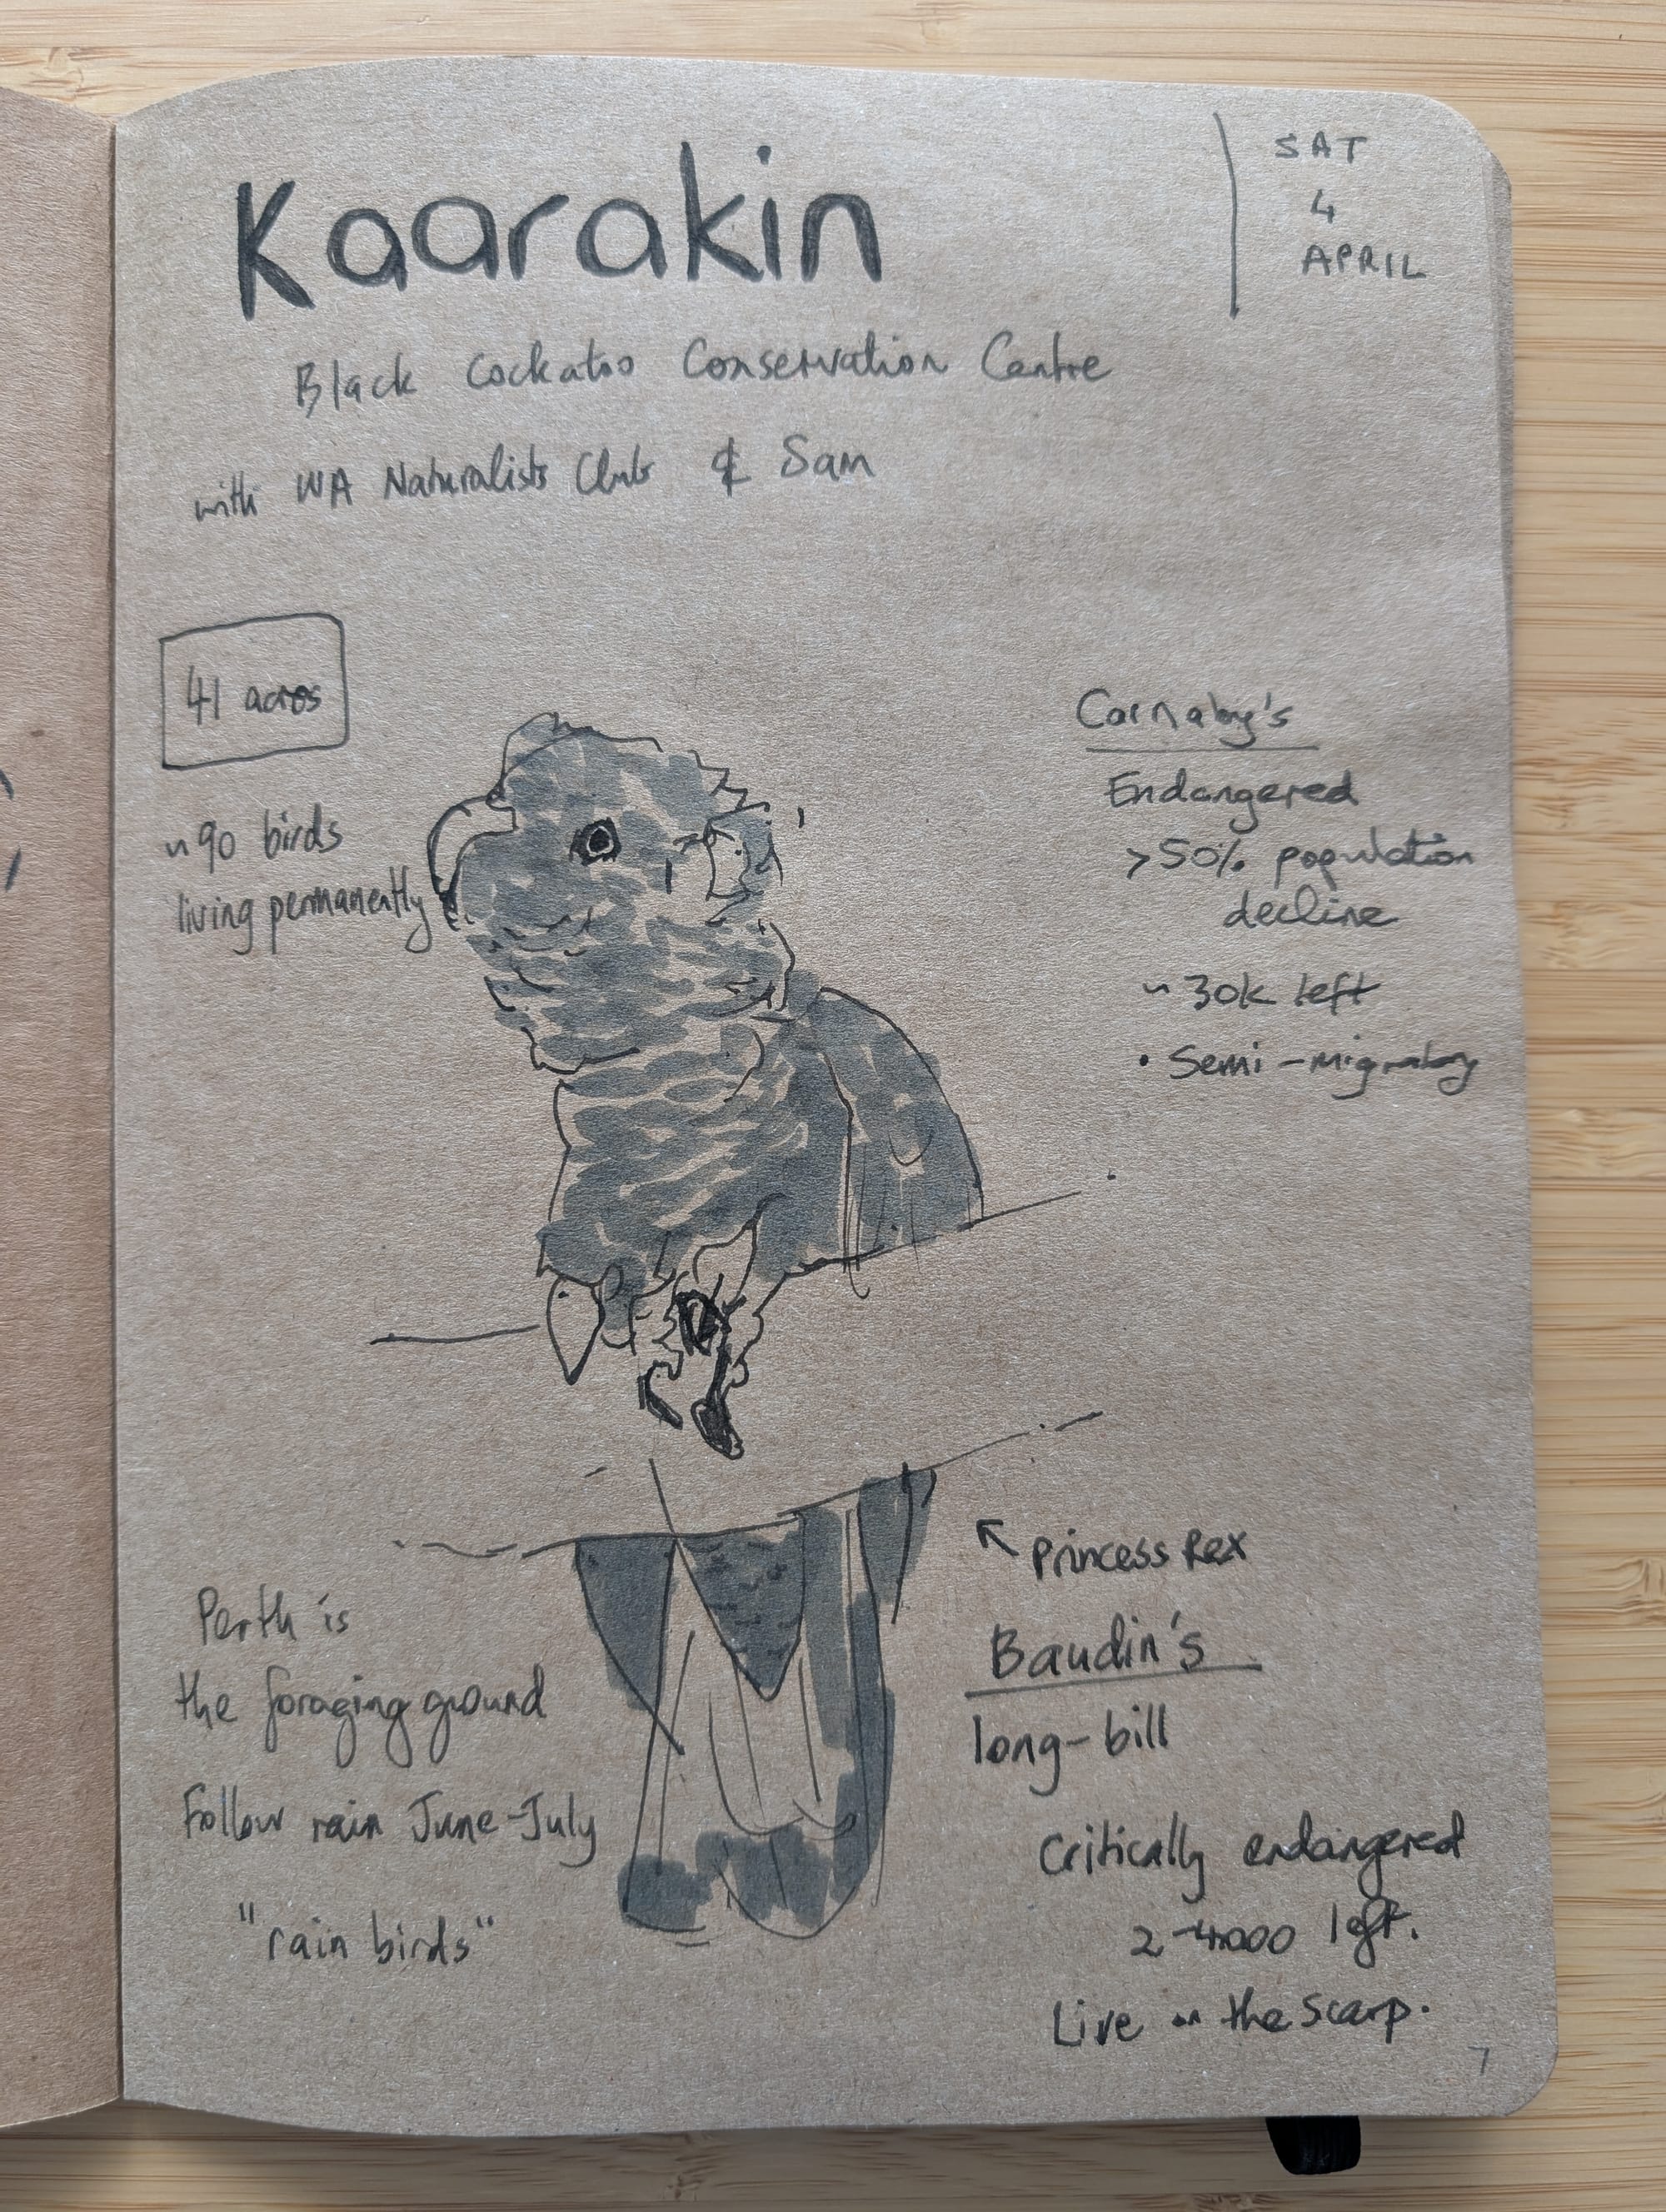 Kaarakin
SAT
4
APRIL
Black Cockatoo Conservation Centre
with WA Naturalists Club & Sam
41 acres
~90 birds
living permanently
Carnaby's
Endangered
>50% population
decline
~ 30k left
• Semi-migratory
Princess Rex
Baudin's
long-bill
Critically endangered
2-4000 left.
Live on the Scarp.
Perth is
the foraging ground
Follow rain June-July
"rain birds"
7